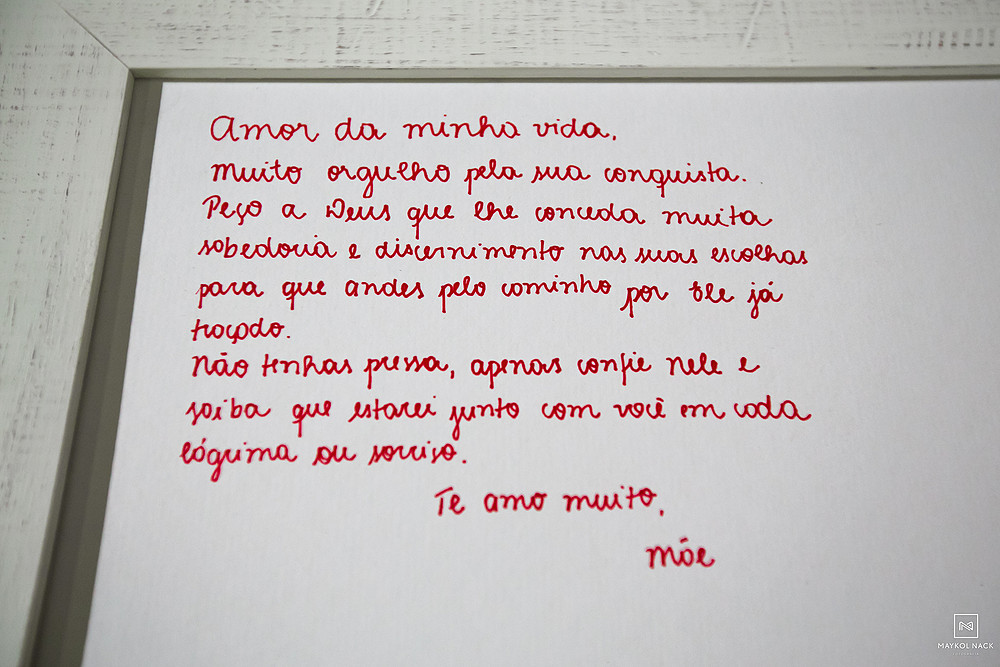 Amor da minha vida,
Muito orgulho pela sua conquista.
Peço a Deus que lhe conceda muita
sabedoria e discernimento nas suas escolhas
para que andes pelo caminho por Ele já
traçado.
Não tenhas pressa, apenas confie Nele e
saiba que estarei junto com você em cada
lágrima ou sorriso.
Te amo muito,
Mãe
MAYKOL NACK